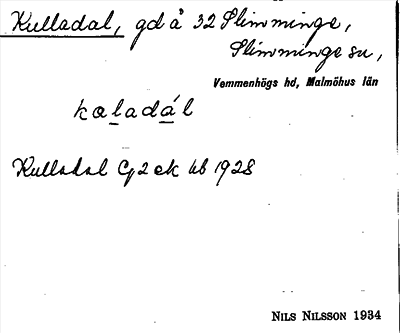 Kulladal, gd å 32 Slimminge,
Slimminge sn,
Vemmenhögs hd, Malmöhus län
kaladál
Kulladal G2 ek kb 1928
NILS NILSSON 1934